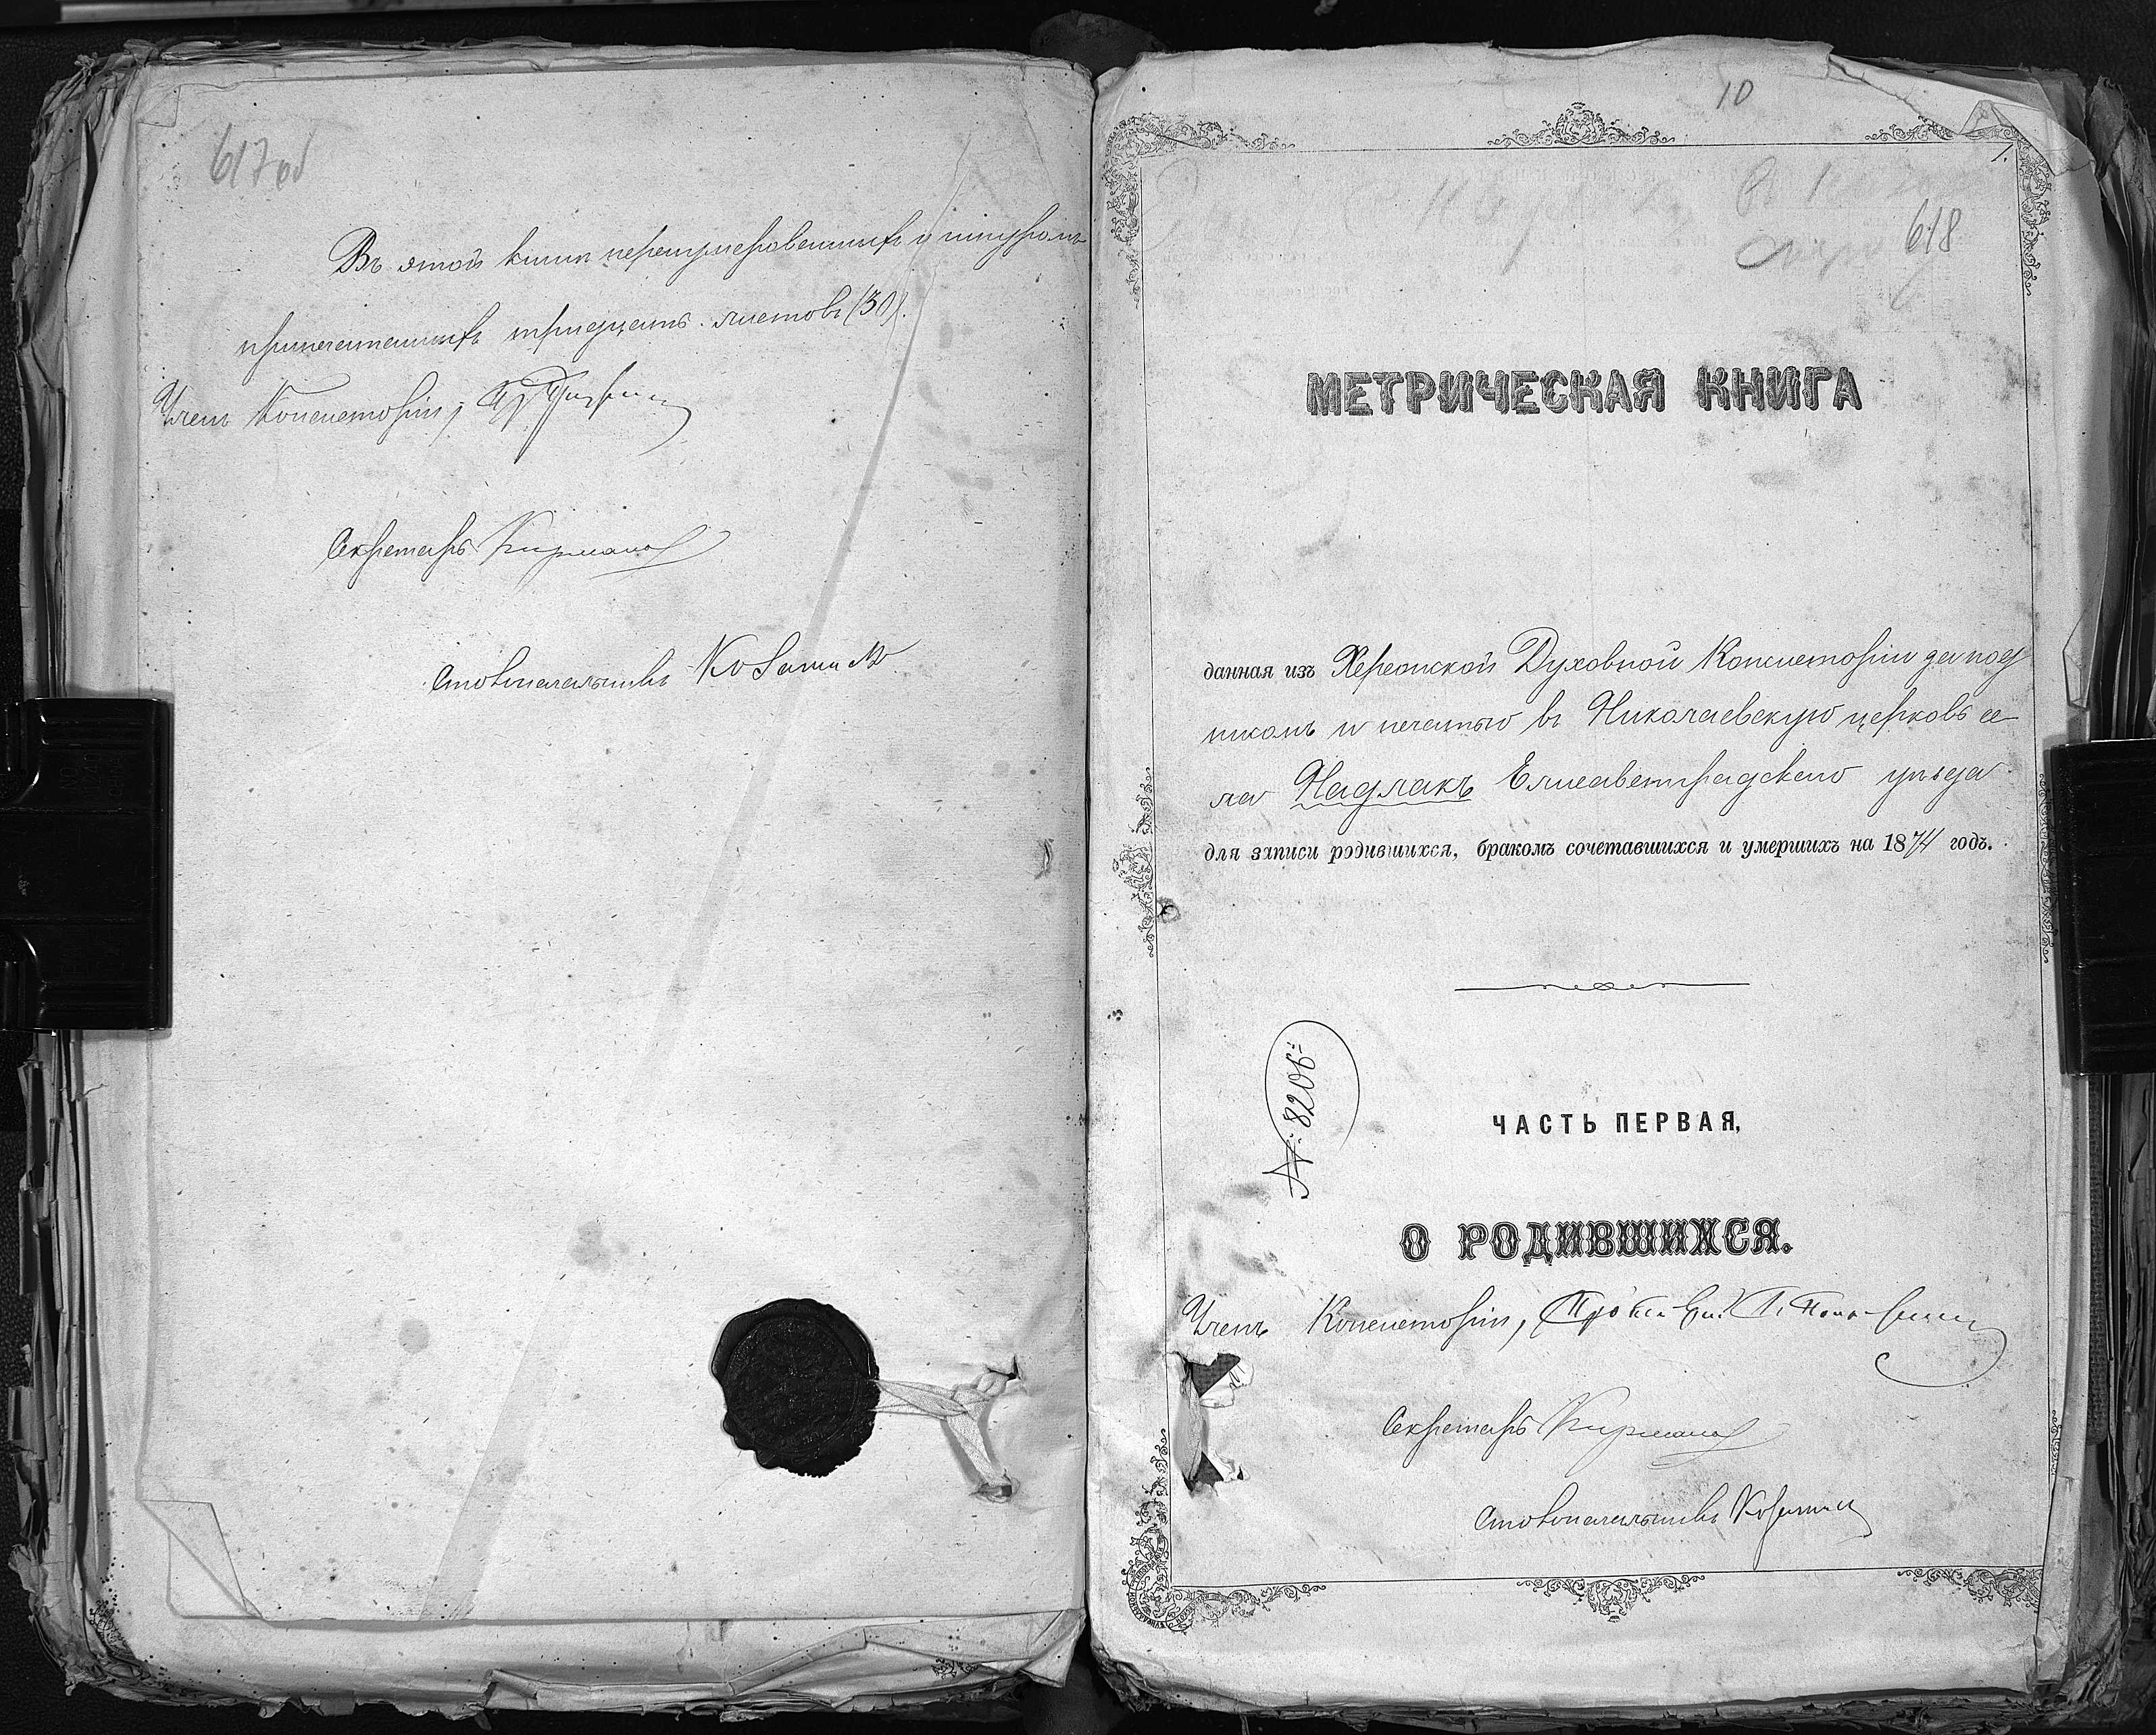 617 об
Въ этой книге перенумерованныхъ и шнуромъ
припечатанныхъ тридцать листовъ (30).
Членъ Консисторіи,
Секретарь
Столоначальникъ
10
1.
618
МЕТРИЧЕСКАЯ КНИГА
данная изъ Херсонской Духовной Консисторіи за под
писомъ и печатью въ Николаевскую церковь се
ла Надлакъ Елисаветградскаго уѣзда
для записи родившихся, бракомъ сочетавшихся и умершихъ на 1874 годъ.
№ 8206
ЧАСТЬ ПЕРВАЯ,
О РОДИВШИХСЯ.
Членъ Консисторіи,
Секретарь
Столоначальникъ